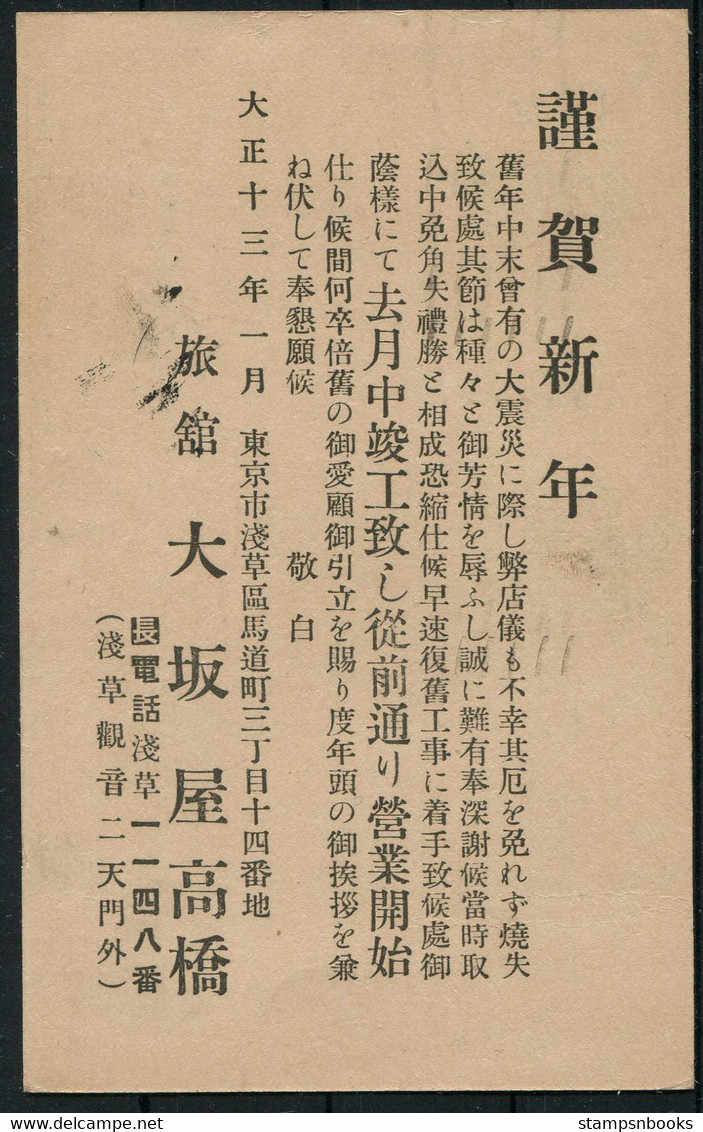 謹賀新年
舊年中末曾有の大震災に際し弊店儀も不幸其厄を免れず燒失
致候處其節は種々と御芳情を辱ふし誠に難有奉深謝候當時取
込中免角失禮勝と相成恐縮仕候早速復舊工事に着手致候處御
蔭樣にて去月中竣工致し從前通り營業開始
仕り候間何卒倍舊の御愛顧御引立を賜り度年頭の御挨拶を兼
ね伏して奉懇願候 敬白
大正十三年一月 東京市淺草區馬道町三丁目十四番地
旅舘 大坂屋高橋
長電話淺草一一四八番
(淺草觀音二天門外)
stampsnbooks
delcampe.net